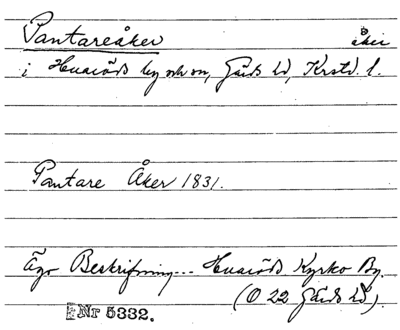 Pantareåker åker
i Huaröds by och sn, Gärds hd, Krstd. l.
Pantare Åker 1831.
Ägo Beskrifning... Huaröds Kyrko By.
(O 22 Gärds hd).
Nr 5332.